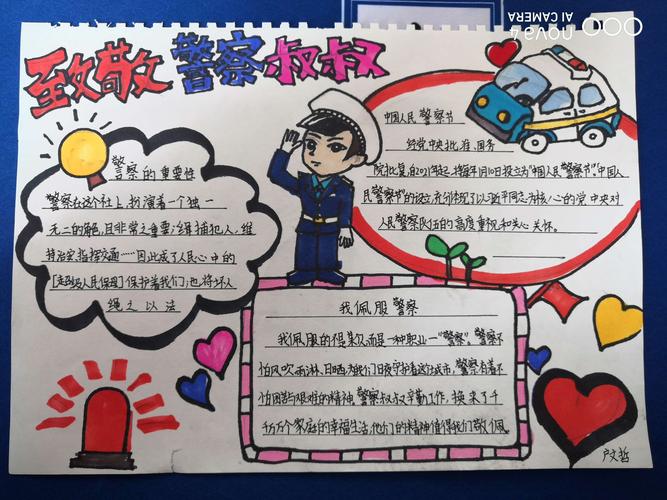 nova 4
AI CAMERA
致敬警察叔叔
警察的重要性
警察在这个社上,扮演着一个独一
无二的角色,且非常之重要:缉捕犯人,维
持治安,指挥交通……因此成了人民心中的
[超级人民保理]保护着我们;也将坏人
绳之以法
中国人民警察节
经党中央批准、国务
院批复,自2021年起,将每年1月10日设立为"中国人民警察节"。中国人
民警察节"的设立,充分体现了以近平同志为核心的党中央对
人民警察队伍的高度重视和关心关怀。
我佩服警察
我佩服的不是某人,而是一种职业—"警察"。警察不
怕风吹雨淋、日晒,为我们日夜守护着这个城市,警察有着不
怕困苦艰难的精神。警察叔叔辛勤工作,换来了千
千万万个家庭的幸福生活,他们的精神值得我们敬佩
卢文哲